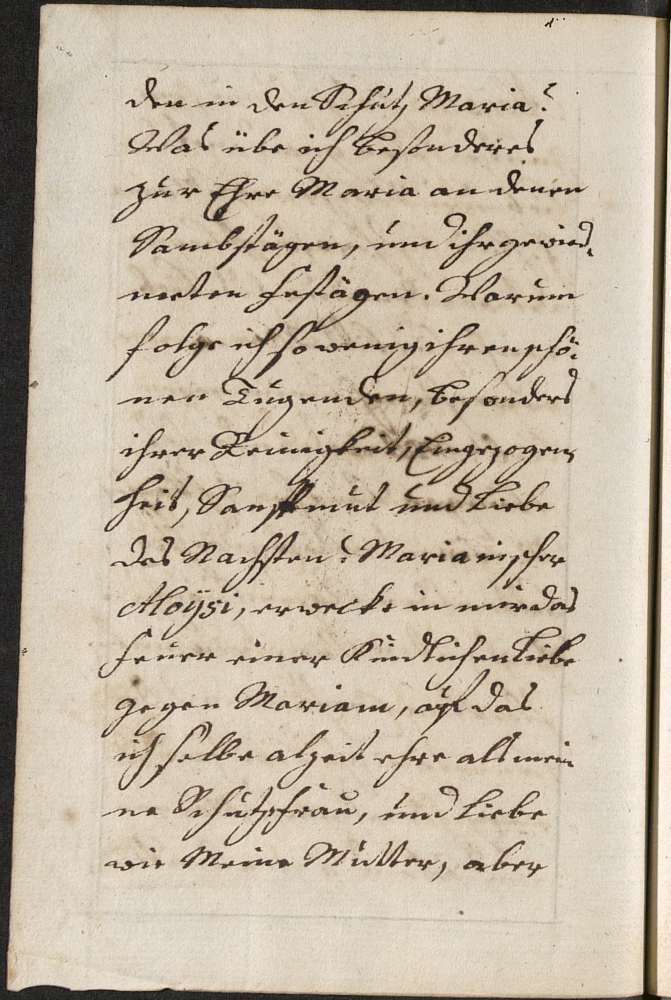 den in den Schutz Maria?
Was übe ich besonderes
zur Ehre Maria an denen
Sambstägen, und ihr gewied¬
meten Festägen. Warum
folge ich so wenig ihren schö¬
nen Tugenden, besonders
ihrer Reinigkeit, Eingezogen¬
heit, Sanftmut und Liebe
des Nachsten? Marianischer
Aloÿsi, erwecke in mir das
Feuer einer Kindlichen Liebe
gegen Mariam, auf das
ich selbe alzeit ehre als mei¬
ne Schutzfrau, und Liebe
wie Meine Mutter, aber